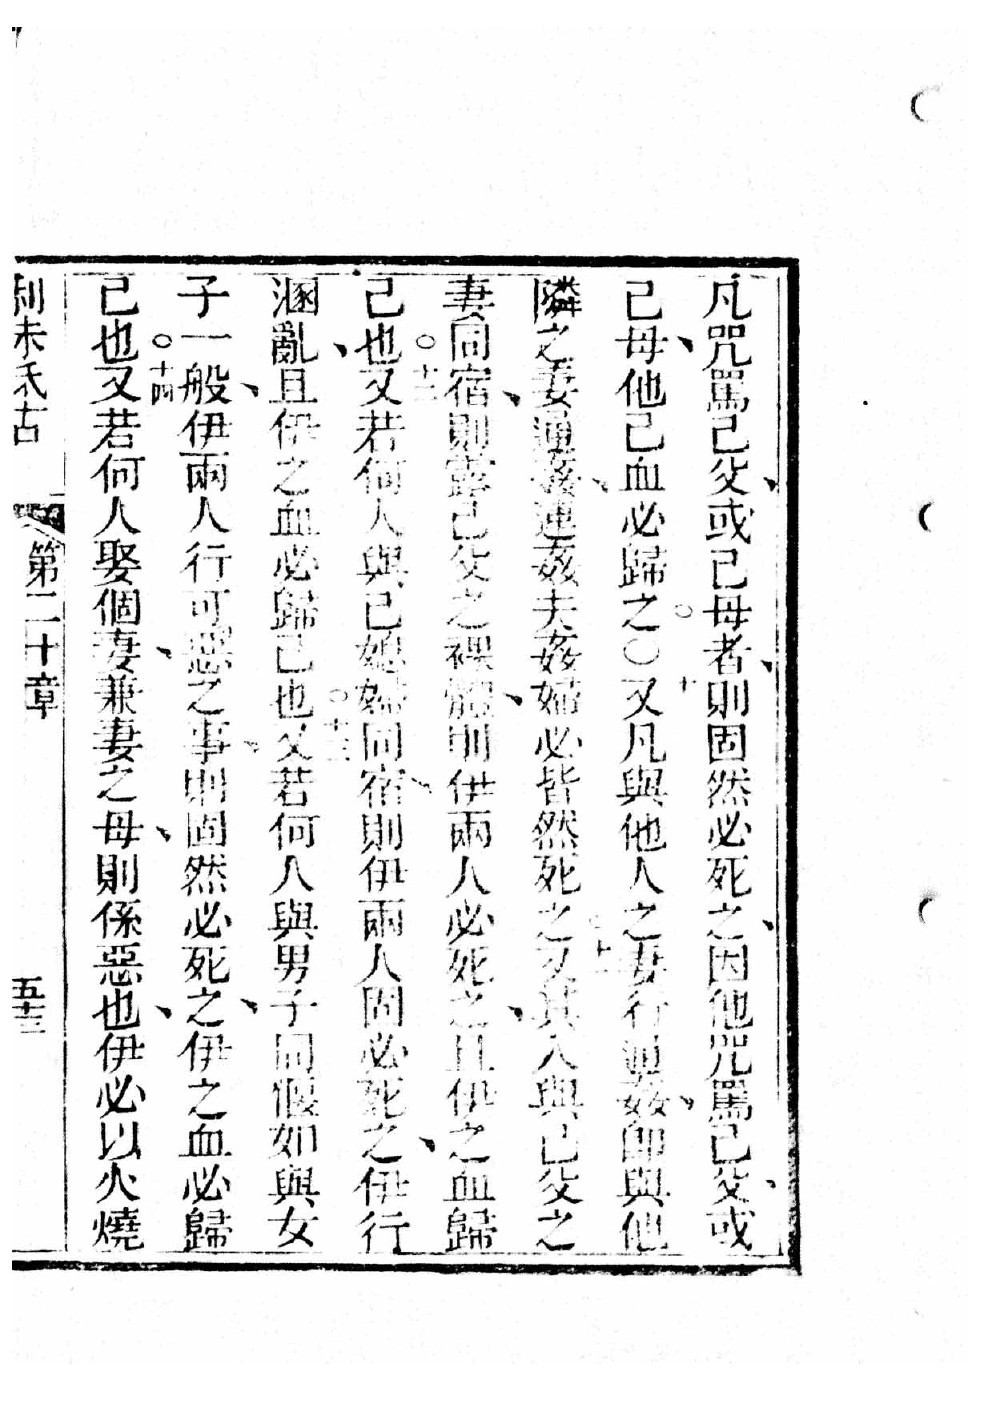 凡咒罵己父或己母者則固然必死之因他咒罵己父或
己母他己血必歸之○又凡與他人之妻行通姦即與他
○十
隣之妻通姦連姦夫姦婦必皆然死之又其人與己父之
○十一
妻同宿則露己父之裸體則伊兩人必死之且伊之血歸
○十二
己也又若何人與己媳婦同宿則伊兩人固必死之伊行
溷亂且伊之血必歸己也又若何人與男子同偃如與女
○十三
子一般伊兩人行可惡之事則固然必死之伊之血必歸
○十四
己也又若何人娶個妻兼妻之母則係惡也伊必以火燒
利未氏古
第二十章
五十三